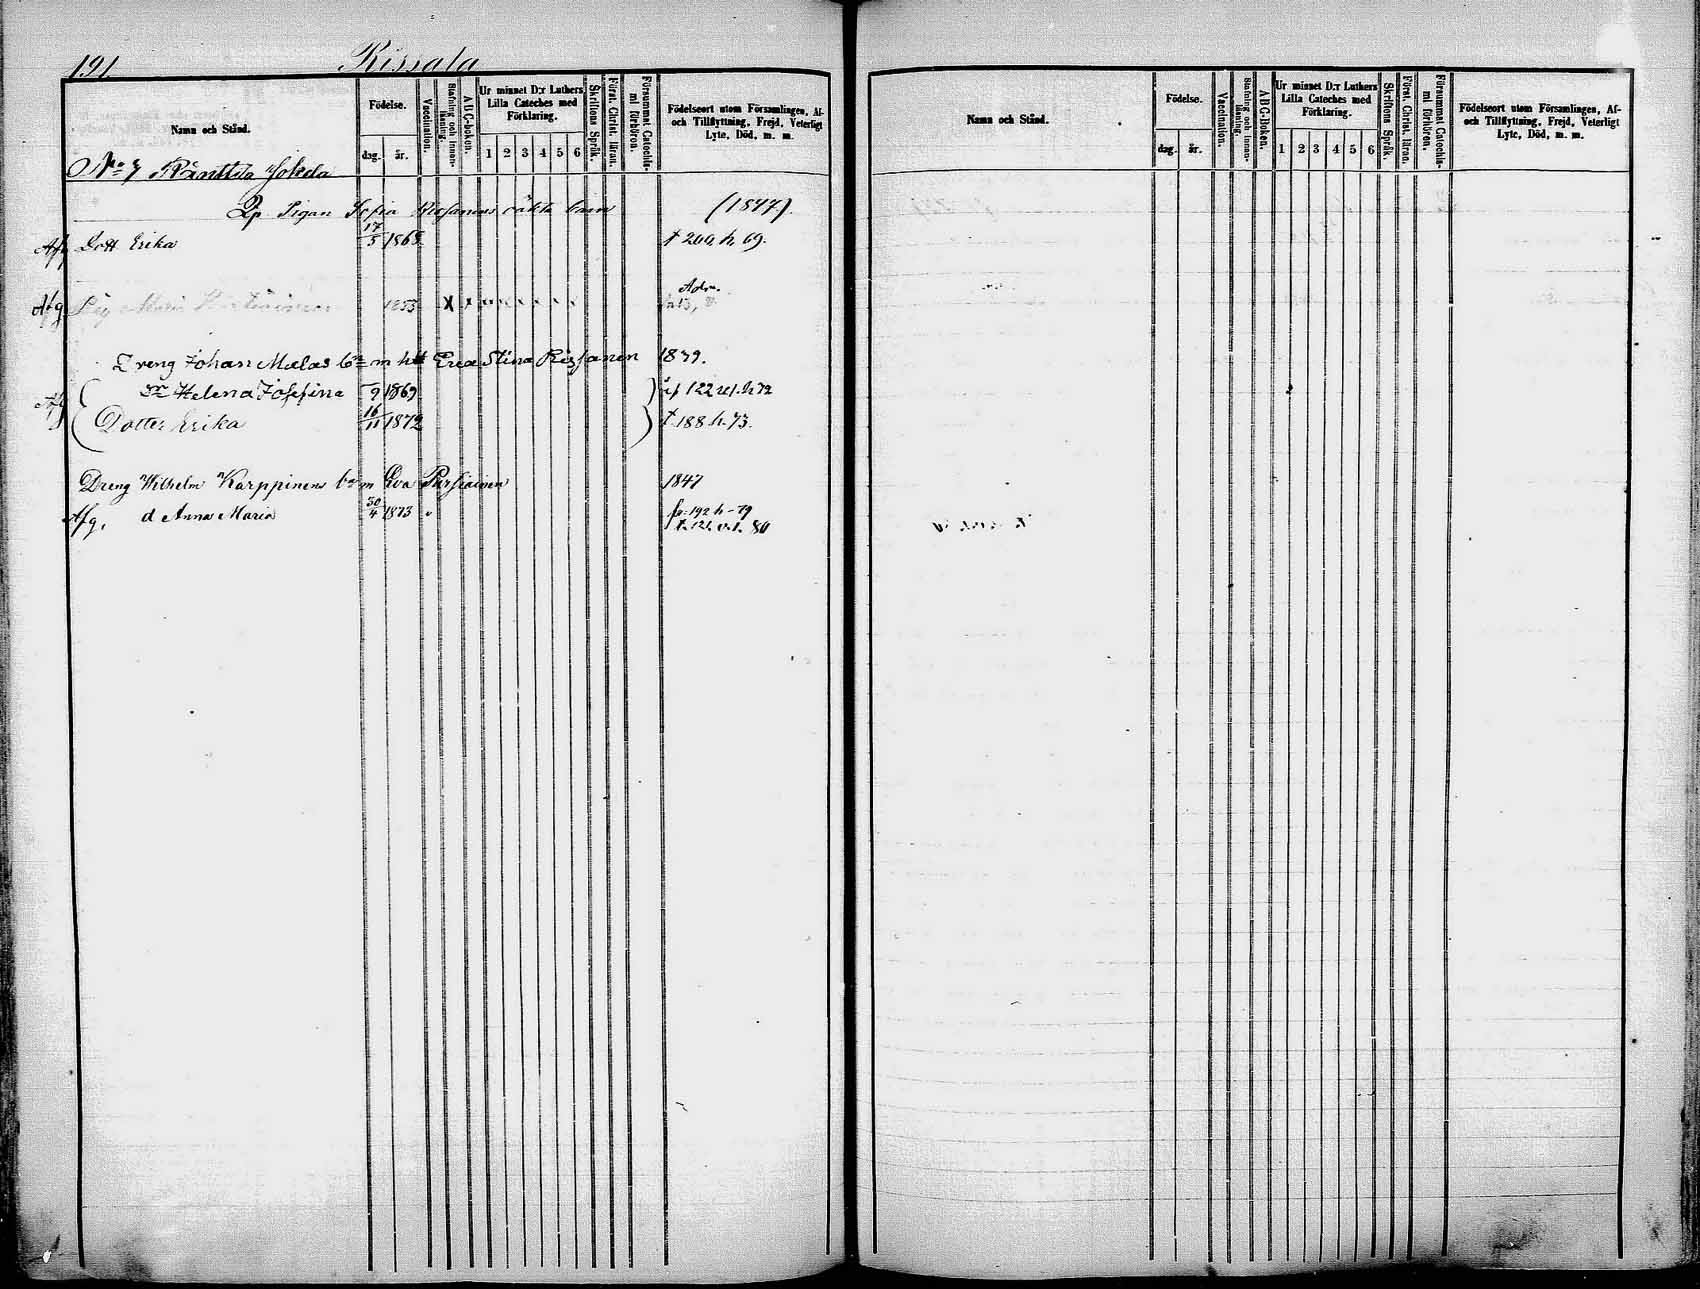 191 Rissala
Namn och Stånd.
Födelse.
dag. år.
Vaccination.
Stafning och Innanläsning.
ABC-boken.
Ur minnet D:r Luthers Lilla Cateches med Förklaring.
1 2 3 4 5 6
Skriftens Språk.
Först. Christ. läran.
Försummat Catechismi förhören.
Födelseort utom Församlingen, Af- och Tillflyttning, Frejd, Veterligt Lyte, Död, m. m.
No 7 Jokela
Pigan Sofia oäkta barn (1847).
Afg Dott Erika 17/5 1865 † 200. h. 69.
Afg Pig Maria 1853 X x x x x x x x
Dreng Johan Malas bn m h H Eva Stina Rissanen 1839.
Helena Josefina 9 1869 122 h 72
Afg Dotter Erika 16/11 1872 † 188 h. 73.
Dreng Wilhelm Karppinens bn m Eva 1847
Afg. d Anna Maria 30/4 1873 192 h - 79
80
Namn och Stånd.
Födelse.
dag. år.
Vaccination.
Stafning och Innanläsning.
ABC-boken.
Ur minnet D:r Luthers Lilla Cateches med Förklaring.
1 2 3 4 5 6
Skriftens Språk.
Först. Christ. läran.
Försummat Catechismi förhören.
Födelseort utom Församlingen, Af- och Tillflyttning, Frejd, Veterligt Lyte, Död, m. m.